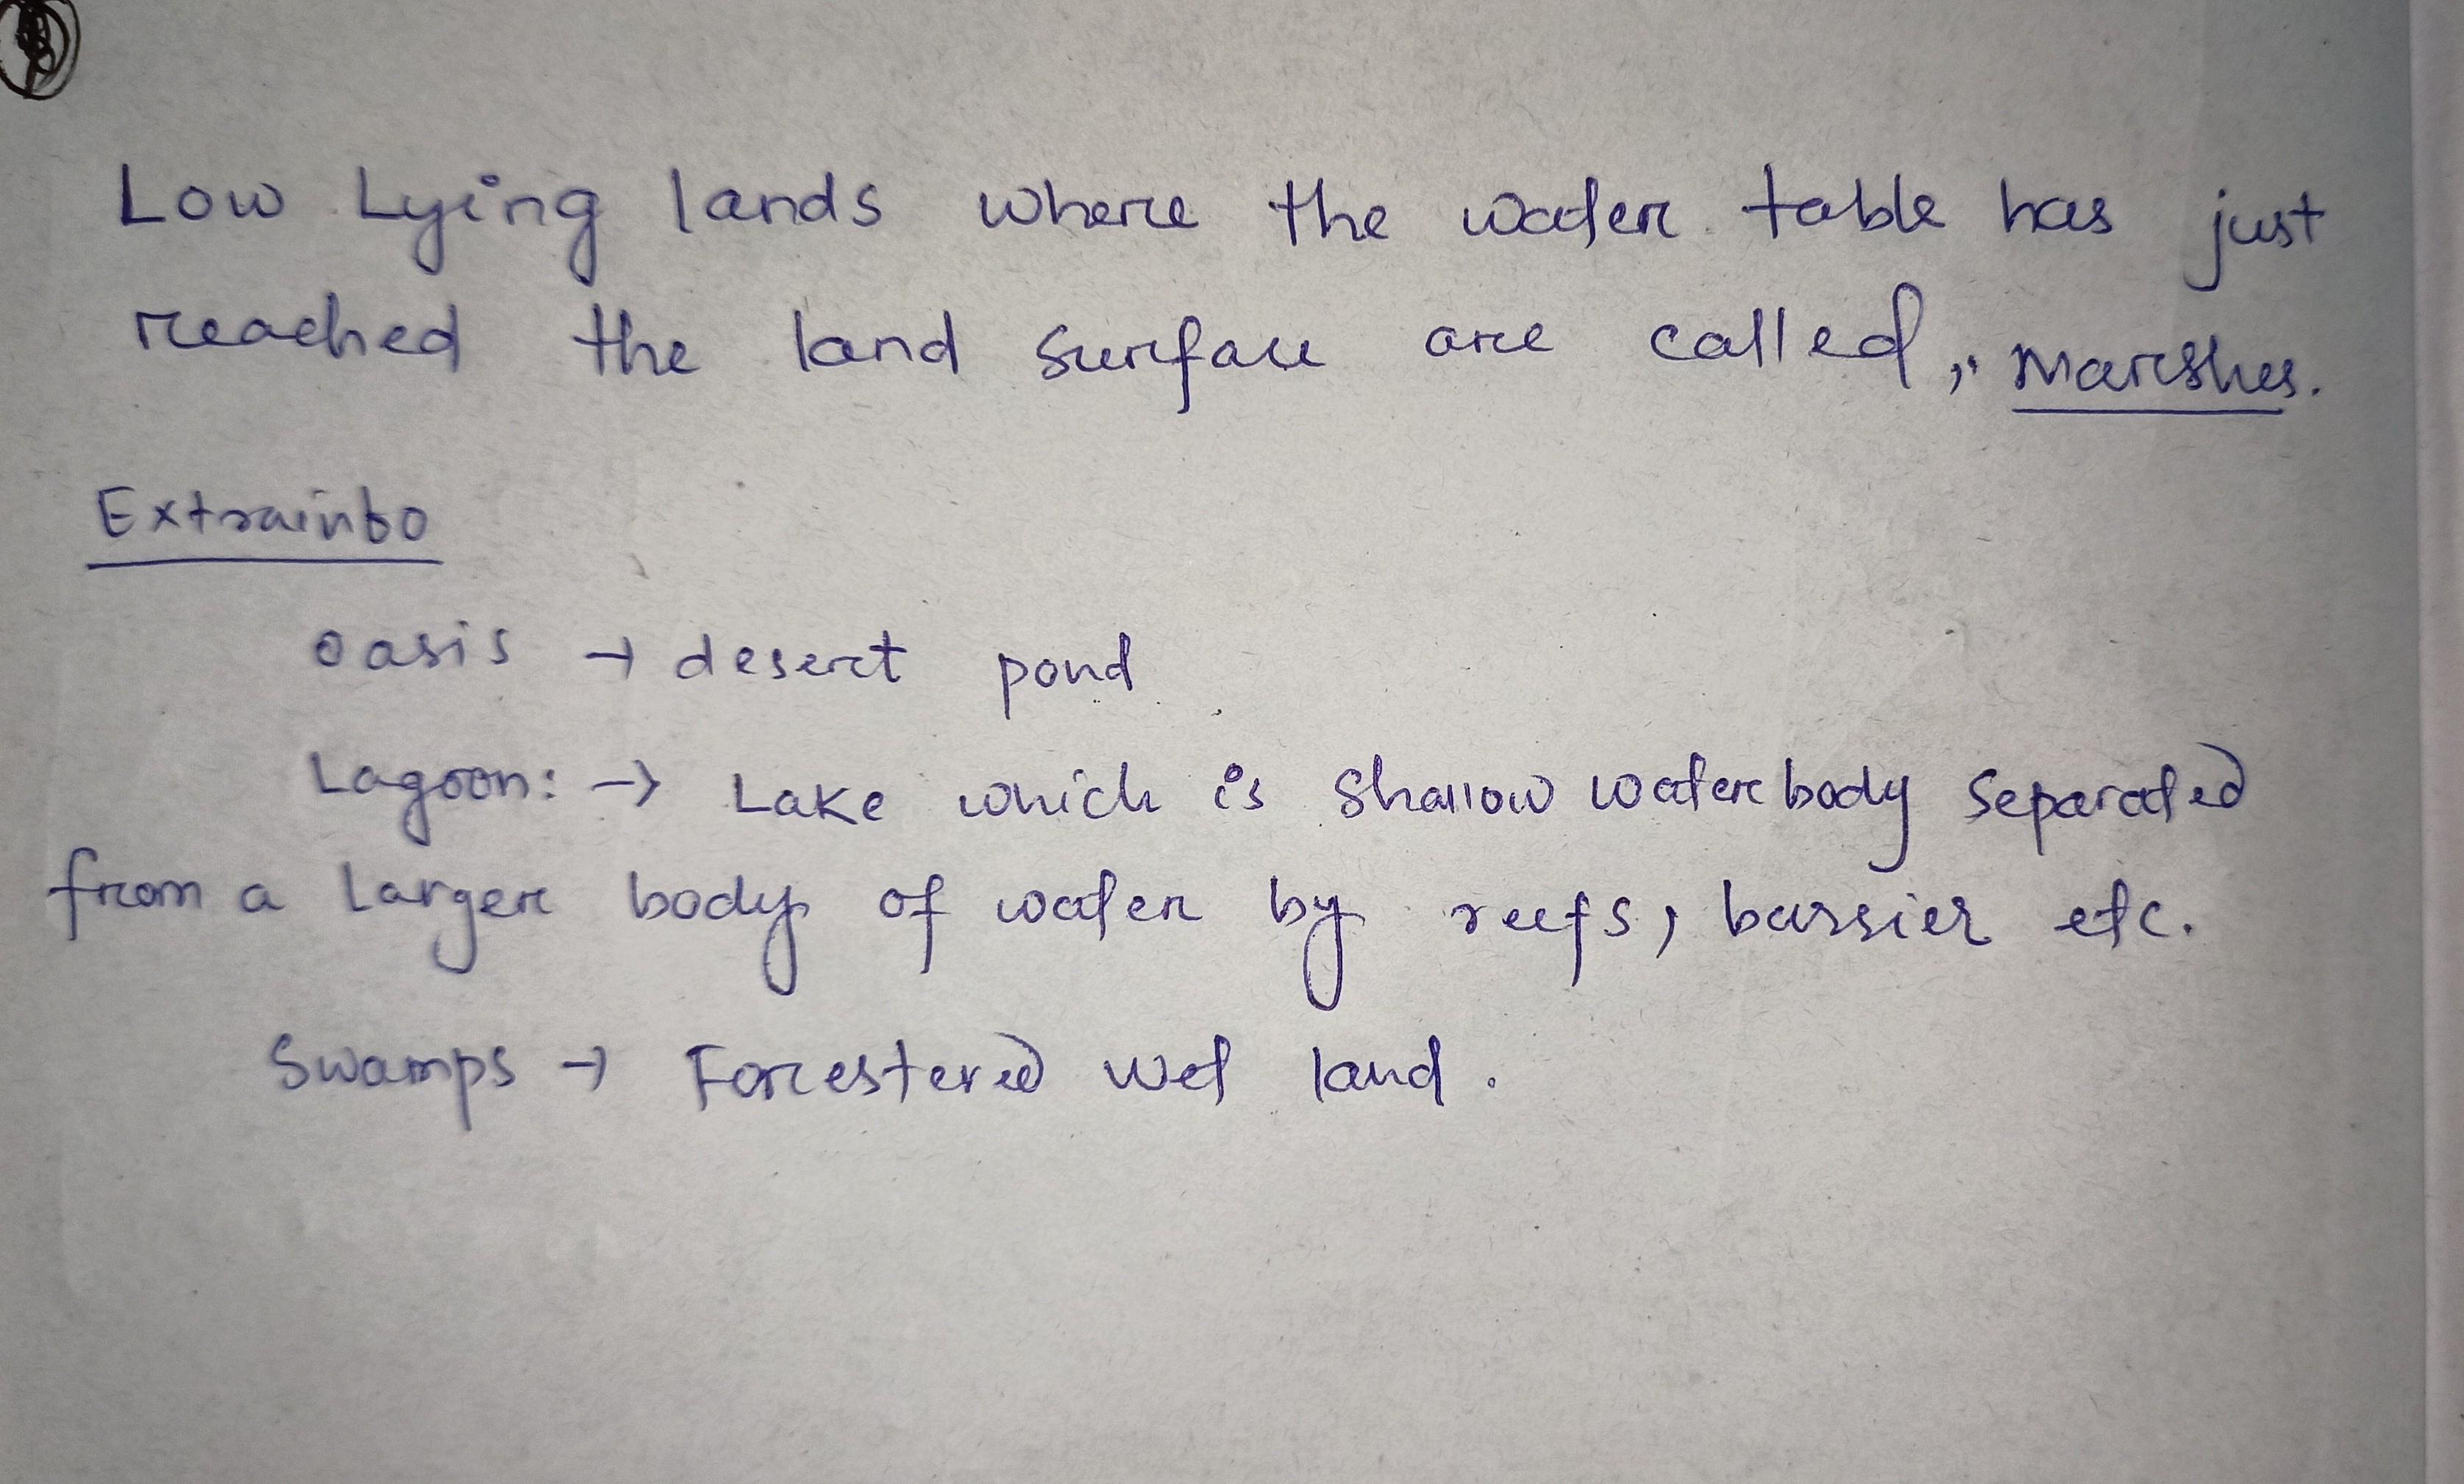 Low Lying lands where the water table has just
reached the land surface are called, Marshes.
Extrainfo
oasis → desert pond
Lagoon: → Lake which is shallow water body separated
from a larger body of water by reefs, barrier etc.
Swamps → Forestered wet land.